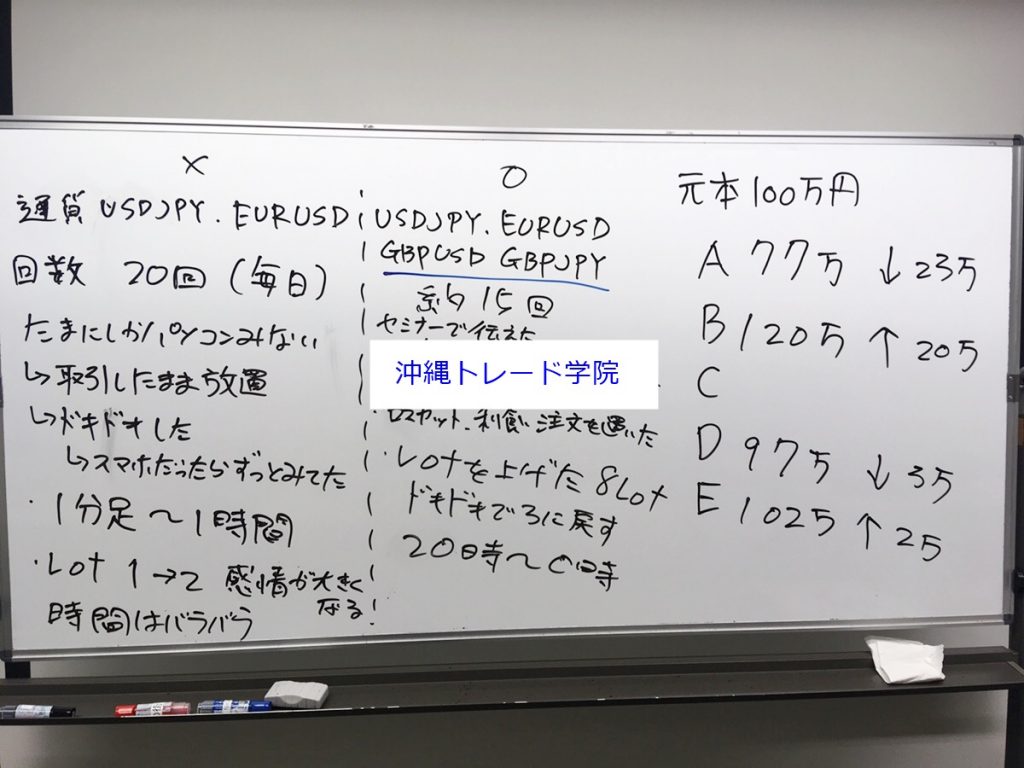 ×
通貨 USDJPY. EURUSD
回数 20回 (毎日)
たまにしかパソコンみない
↳取引したまま放置
↳ドキドキした
↳スマホだったらずっとみてた
・1分足～1時間
・Lot 1→2 感情が大きく
なる!
時間はバラバラ
○
USDJPY. EURUSD
GBPUSD GBPJPY
約15回
セミナーで伝えた
沖縄トレード学院
ロスカット、利食い注文を置いた
・Lotを上げた 8Lot
ドキドキで3に戻す
20時～0時
元本100万円
A 77万 ↓23万
B 120万 ↑20万
C
D 97万 ↓3万
E 102万 ↑2万